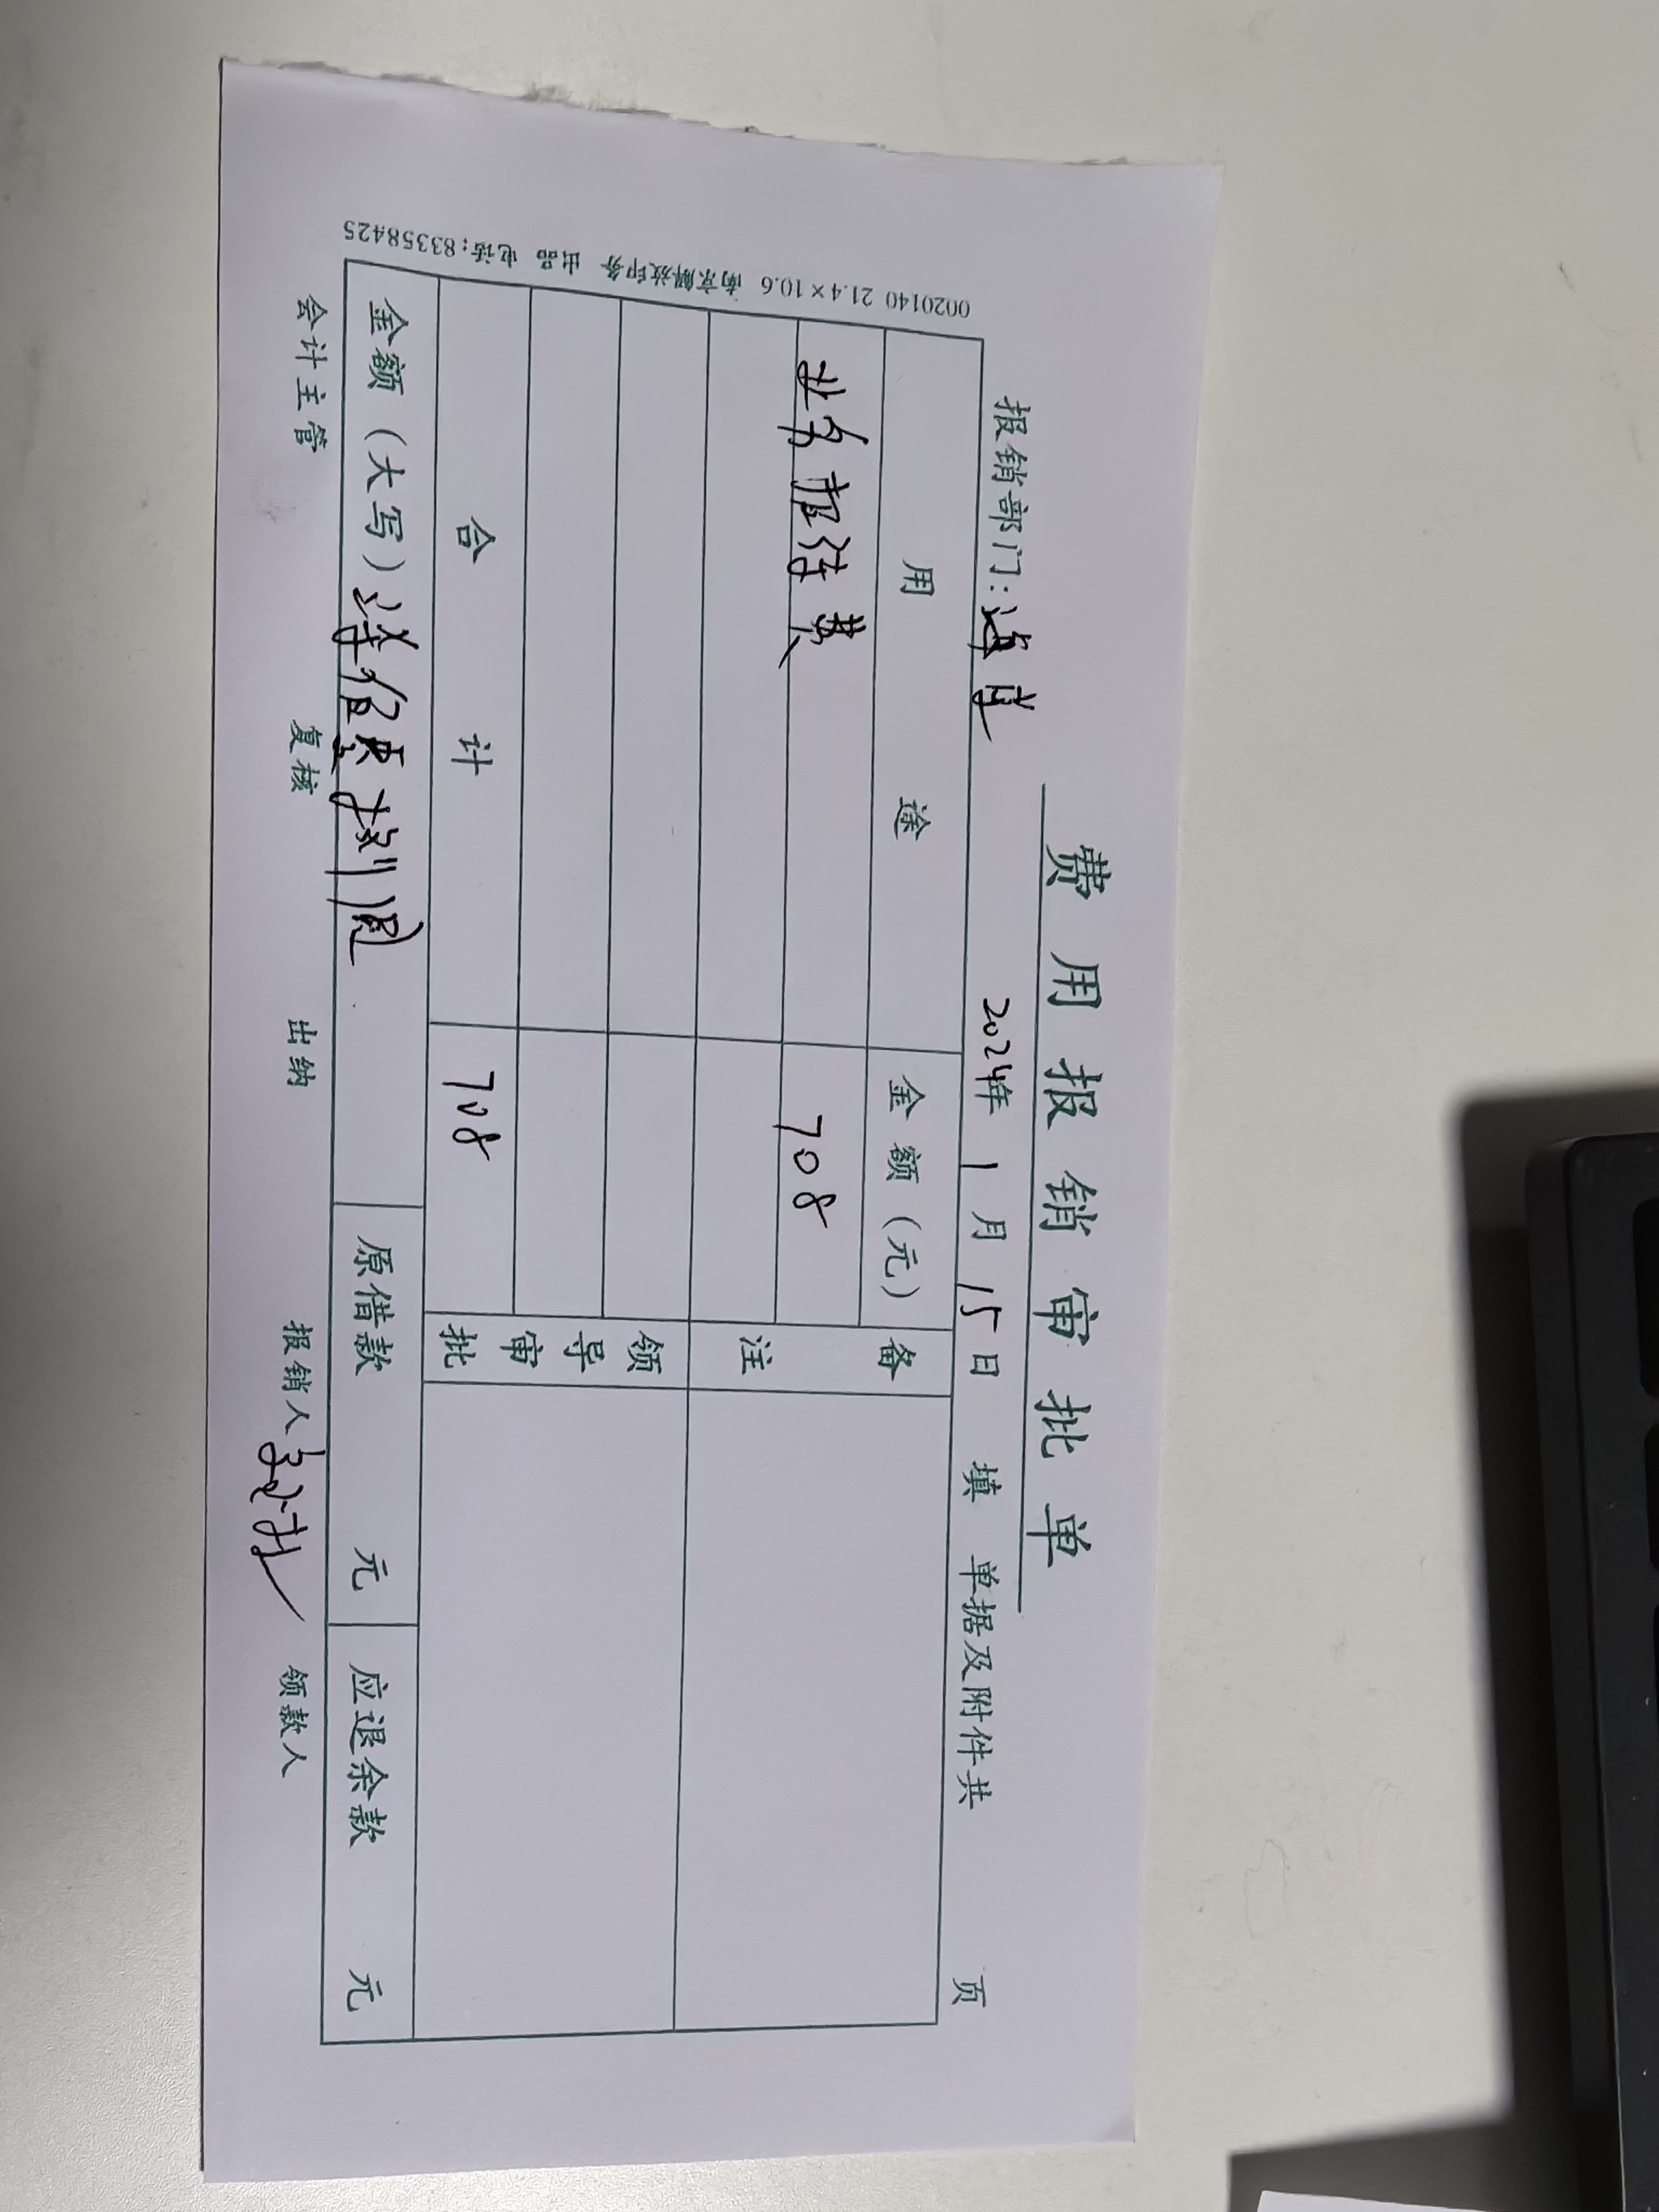 费用报销审批单
报销部门:
2024年 1 月 15 日 填 单据及附件共 页
用途 金额(元) 备注
业务招待费 708
领导审批
合计 708
金额(大写) 柒佰零捌圆 原借款 元 应退余款 元
会计主管 复核 出纳 报销人 领款人
0020140 21.4×10.6 南京解放印务 出品 电话:83358425